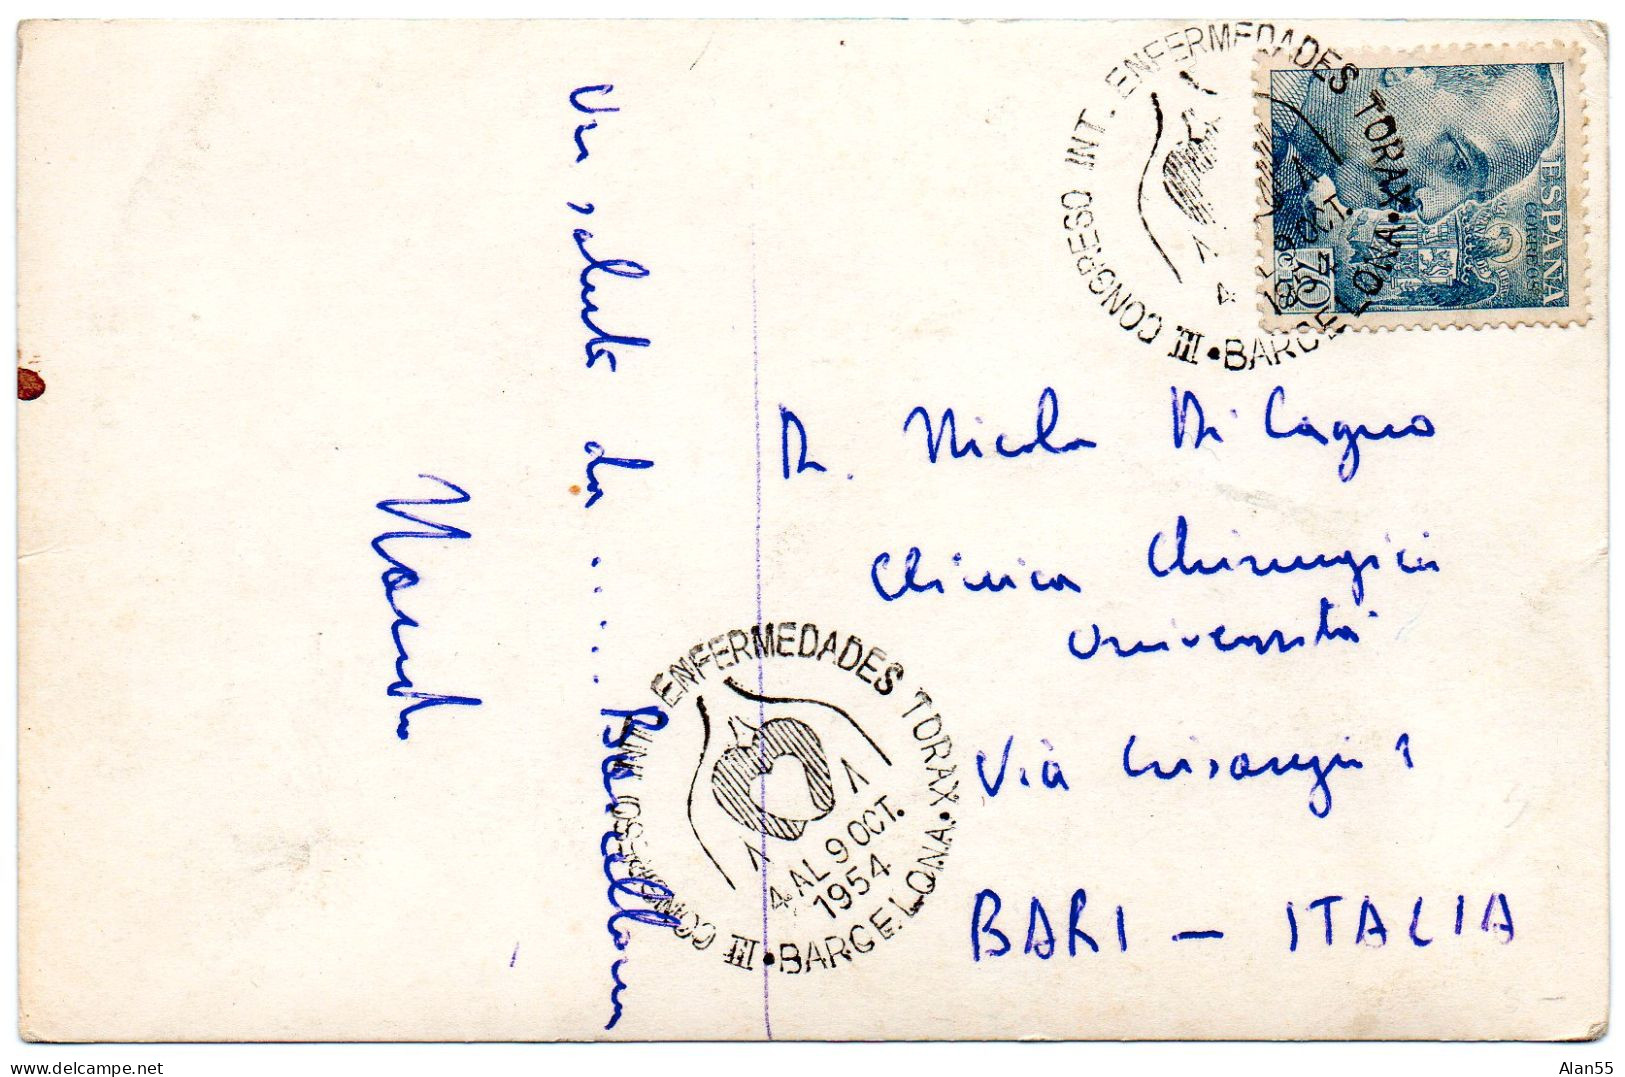 Un saluto
da .....
Barcellona
III CONGRESO INT. ENFERMEDADES TORAX.
4 AL 9 OCT.
1954
• BARCELONA •
ESPAÑA
CORREOS
III CONGRESO INT. ENFERMEDADES TORAX.
4 AL 9 OCT.
1954
• BARCELONA •
Dr. Nicola Di Cagno
Clinica Chirurgica
Università
Via
BARI - ITALIA
Delcampe.net
Alan55